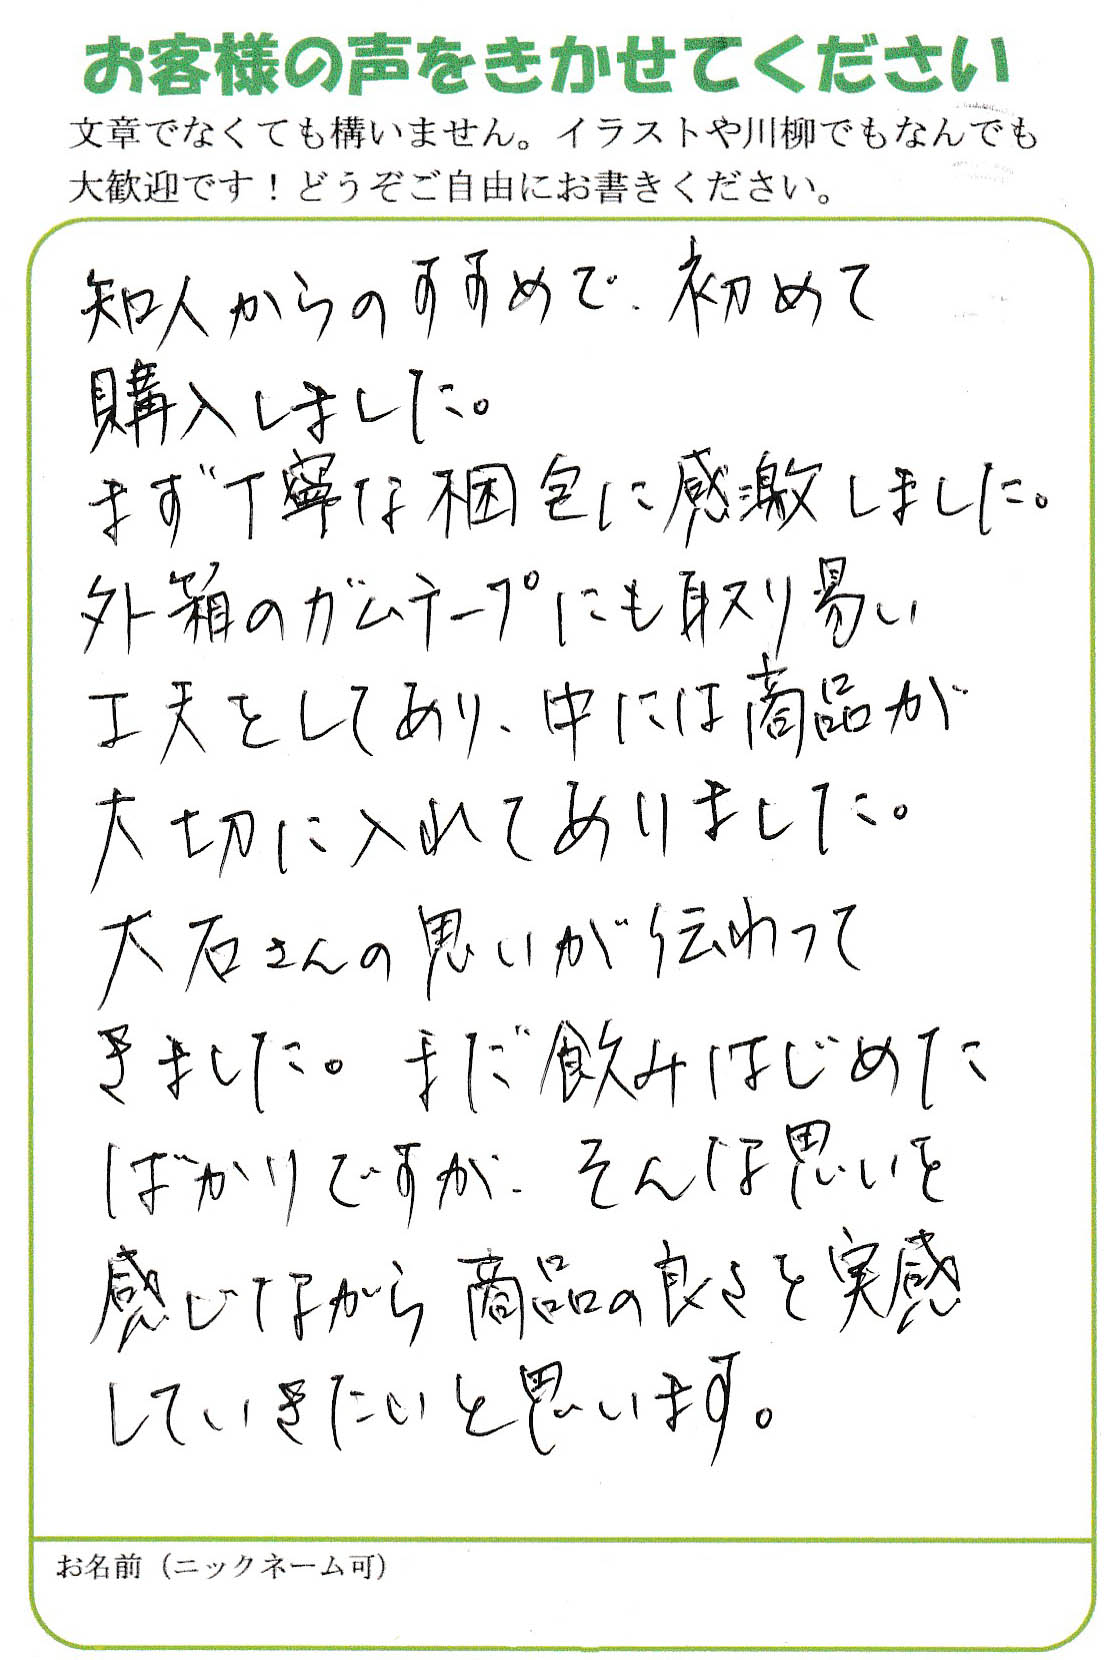 お客様の声をきかせてください
文章でなくても構いません。イラストや川柳でもなんでも
大歓迎です！どうぞご自由にお書きください。
知人からのすすめで、初めて
購入しました。
まず丁寧な梱包に感激しました。
外箱のガムテープにも取り易い
工夫をしてあり、中には商品が
大切に入れてありました。
大石さんの思いが伝わって
きました。まだ飲みはじめた
ばかりですが、そんな思いを
感じながら商品の良さを実感
していきたいと思います。
お名前（ニックネーム可）